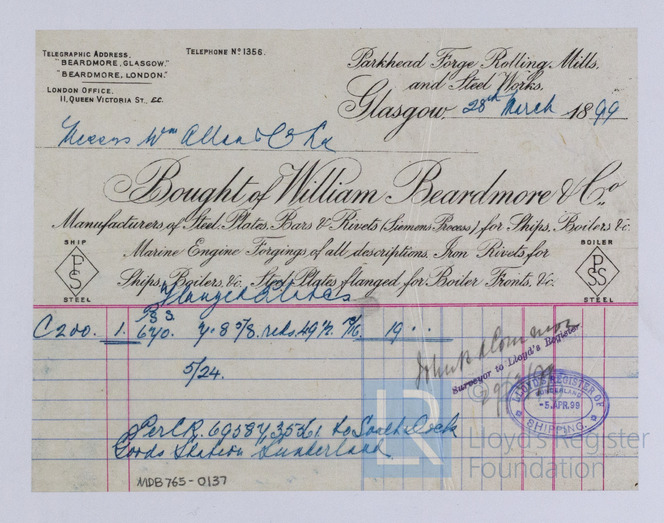 TELEGRAPHIC ADDRESS,
"BEARDMORE, GLASGOW."
"BEARDMORE, LONDON."
LONDON OFFICE,
11, QUEEN VICTORIA ST., E.C.
TELEPHONE No 1356.
Parkhead Forge Rolling Mills,
and Steel Works.
Glasgow, 28th March 1899
Messrs Wm Allan & Co Ld
Bought of William Beardmore & Co.,
Manufacturers of Steel Plates, Bars & Rivets (Siemens Process) for Ships, Boilers &c.
Marine Engine Forgings of all descriptions. Iron Rivets for
Ships, Boilers, &c. Steel Plates flanged for Boiler Fronts, &c.
SHIP
PS
STEEL
BOILER
PSS
STEEL
Flanged Plates
C200. 1. 670. 19 . .
5/24.
Per C.R. to South Dock
Goods Station Sunderland
Surveyor to Lloyd's Register
LLOYD'S REGISTER OF
SUNDERLAND
-5.APR.99
SHIPPING.
MDB765-0137
©
LR
Lloyd's Register
Foundation